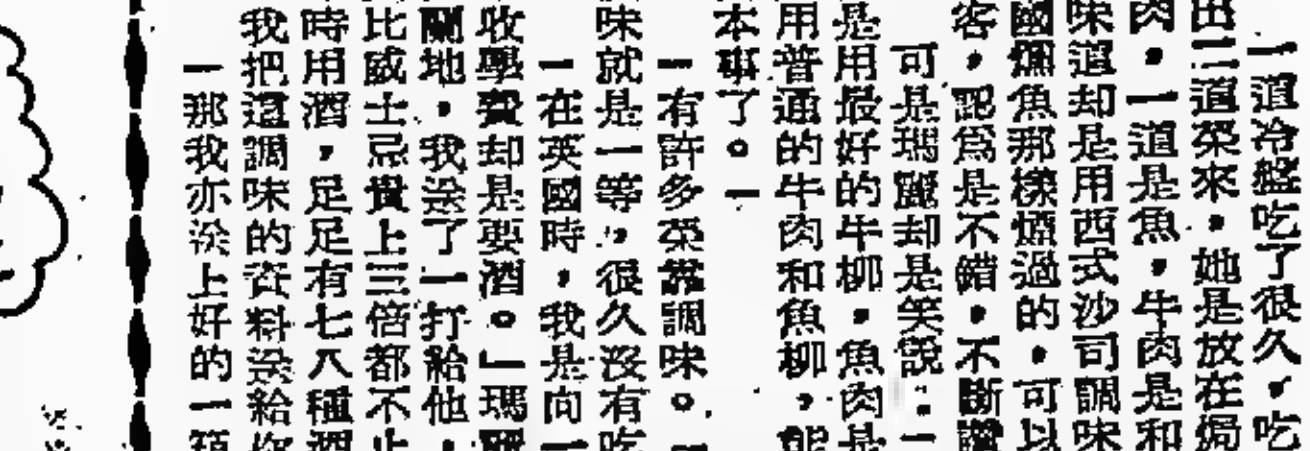 一道冷盤吃了很久，吃
出二道菜來，她是放在焗
肉，一道是魚，牛肉是和
味道却是用西式沙司調味
國燻魚那樣燻過的，可以
客，認爲是不錯，不斷讚
可是瑪麗却是笑說：「
是用最好的牛柳，魚肉是
用普通的牛肉和魚柳，能
本事了。」
「有許多菜靠調味。
味就是一等，很久沒有吃
「在英國時，我是向一
收學費却是要酒。」瑪麗
蘭地，我送了一打給他，
比威士忌貴上三倍都不止
時用酒，足足有七八種酒
我把這調味的資料送給你
「那我亦送上好的一